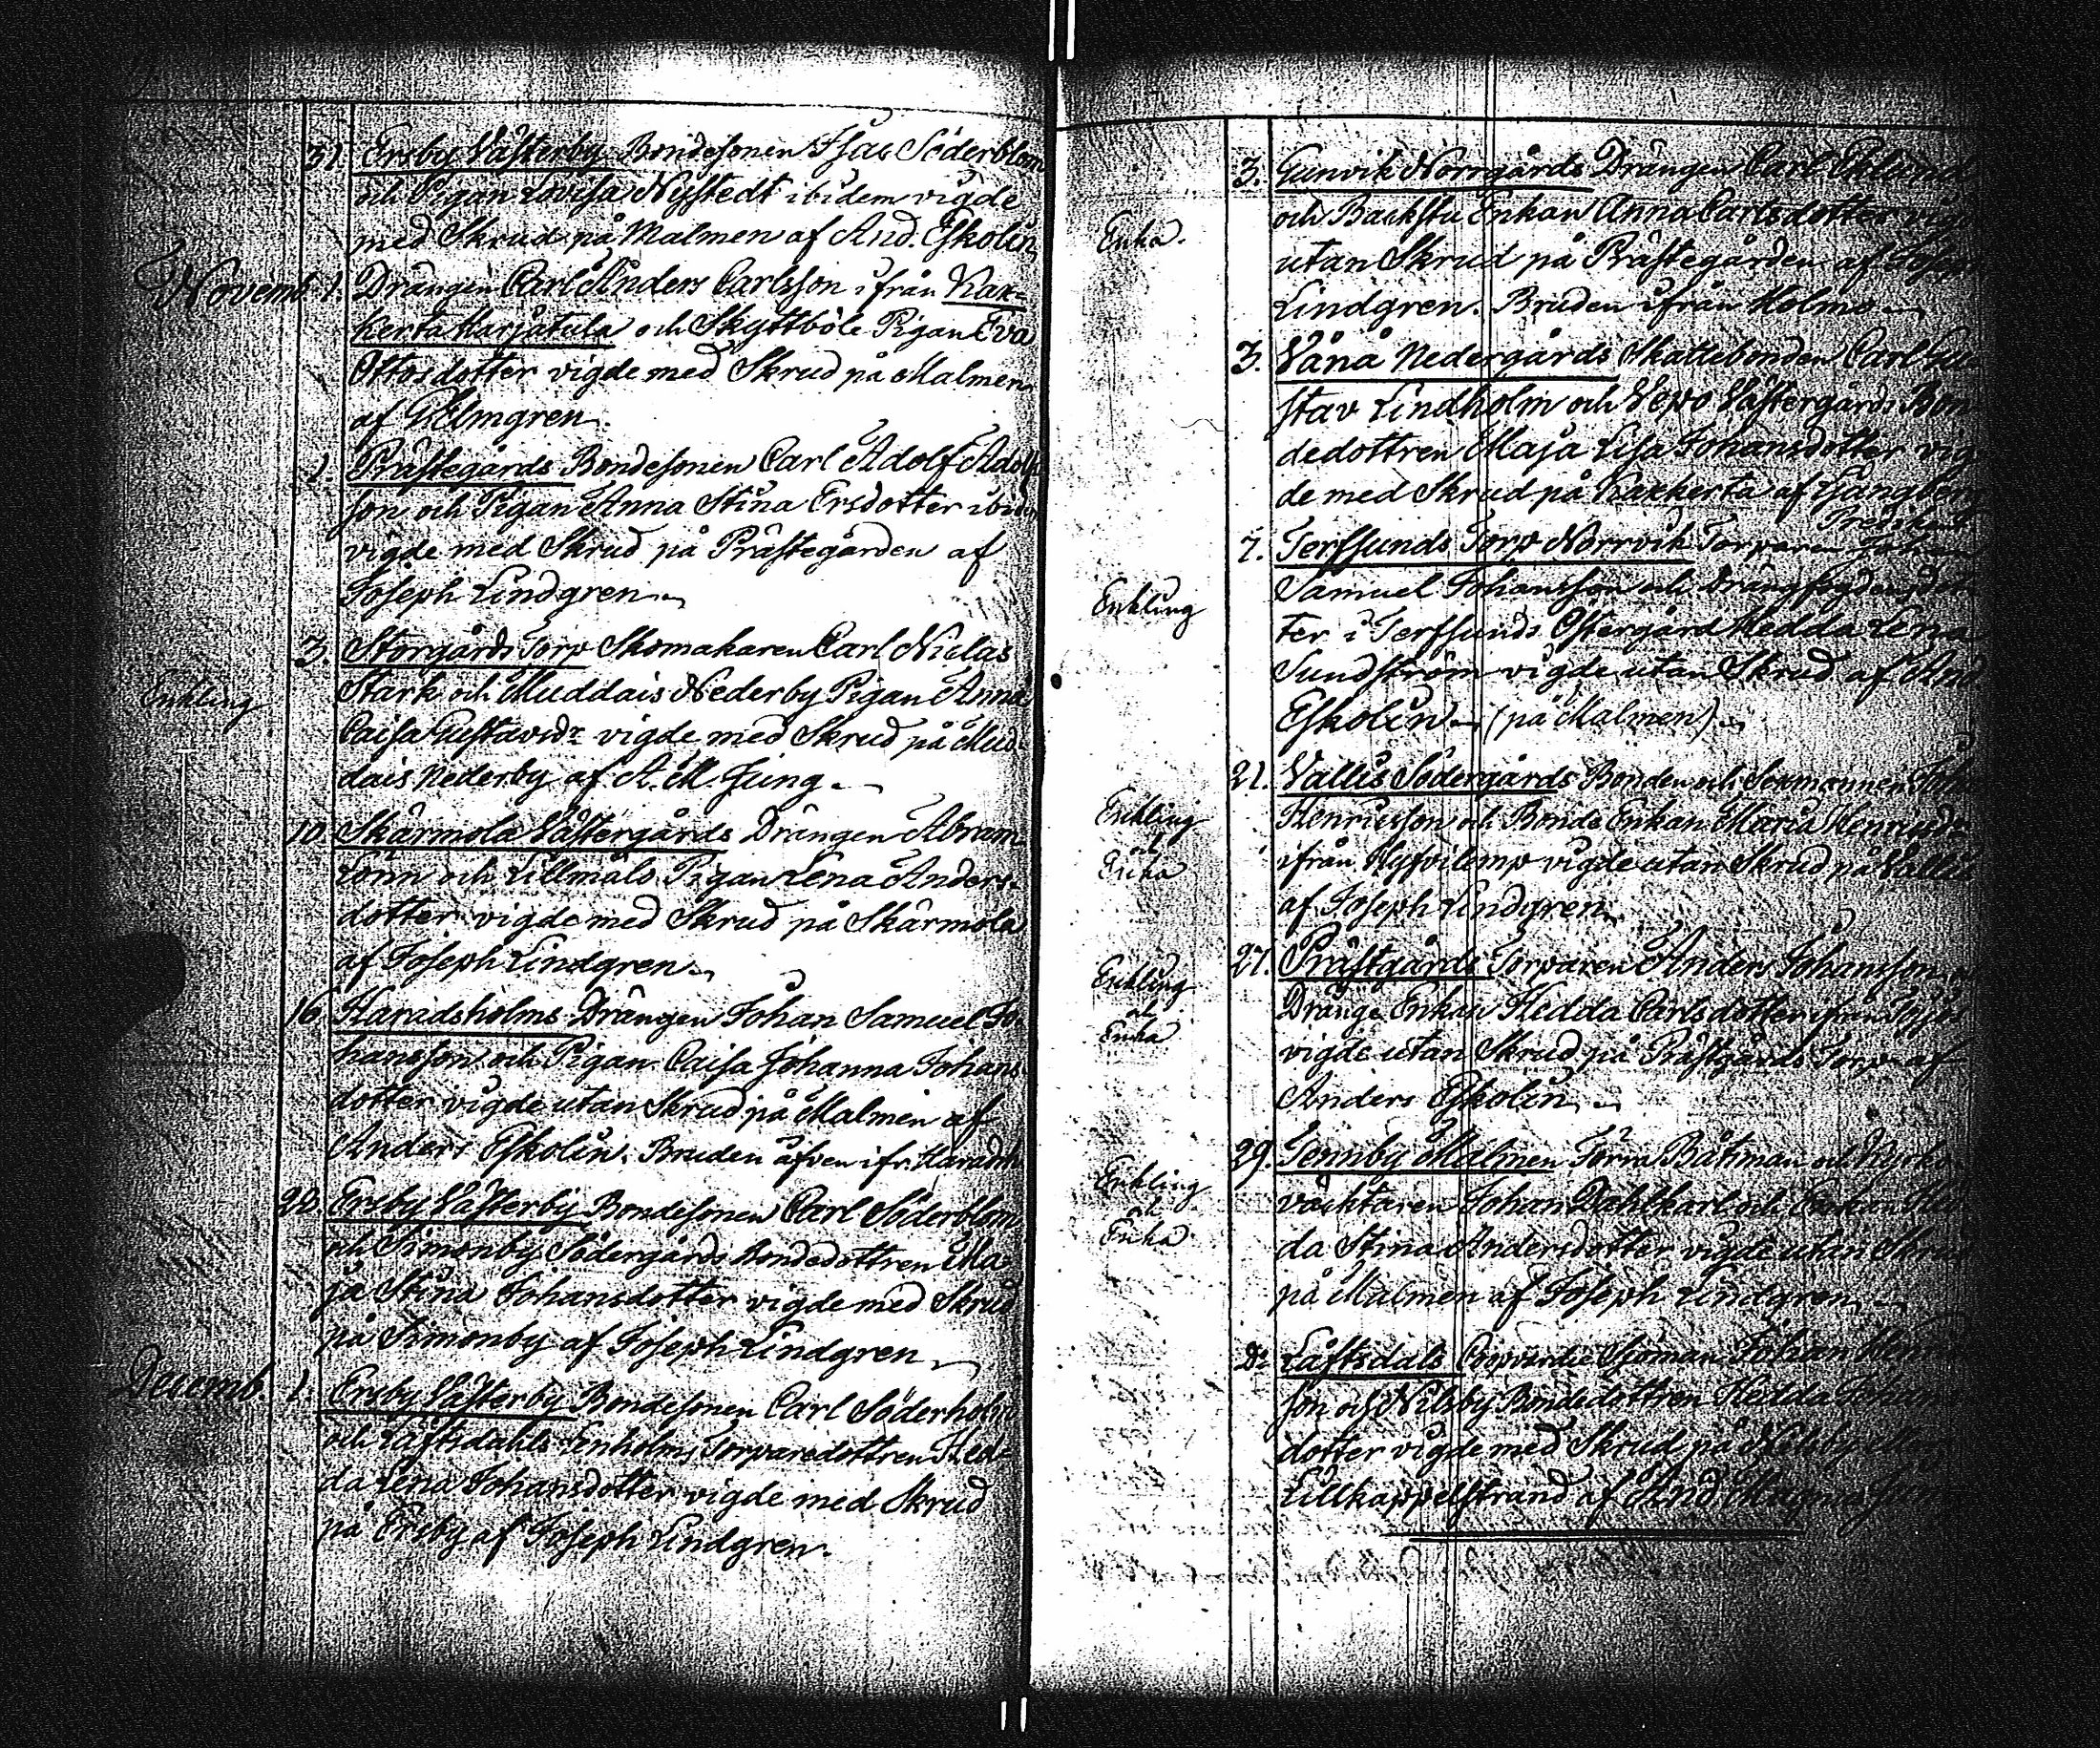 31. Ersby Västerby Bondesonen Isac Söderblom
och Pigan Lovisa Nystedt ibidem vigde
med Skrud på Malmen af And. Eskolin
Novemb. 1. Drängen Carl Anders Carlsson ifrån Kak-
kerta Harjatula och Skyttböle Pigan Eva
Ottosdotter vigde med Skrud på Malmen
af G. Elmgren
1. Prästegårds Bondesonen Carl Adolf Adolfs
son och Pigan Anna Stina Ersdotter ibidem
vigde med Skrud på Prästegården af
Joseph Lindgren
3. Storgårds Torp Skomakaren Carl Niclas
Enkling
Stark och Muddais Nederby Pigan Anna
Caisa Gustavsdr vigde med Skrud på Mud-
dais Nederby af A. M. Jung.
10. Skärmola Västergårds Drängen Abram
Lönn och Lillmälo Pigan Lena Anders-
dotter vigde med Skrud på Skärmola
af Joseph Lindgren
16. Haradsholms Drängen Johan Samuel Jo-
hansson och Pigan Caisa Johanna Johans
dotter vigde utan Skrud på Malmen af
Anders Eskolin. Bruden äfven ifr. Haradsh
Ersby Västerby Bondesonen Carl Söderblom
och Simonby Södergårds Bondedottren Ma
ja Stina Johansdotter vigde med Skrud
på Simonby af Joseph Lindgren
Decemb. 1. Ersby Västerby Bondesonen Carl Söderholm
och Läftsdahls Torparedottren Hed-
da Lena Johansdotter vigde med Skrud
på Ersby af Joseph Lindgren.
3. Gunvik Norrgårds Drängen Carl Eklund
Enka.
och Backstu Enkan Anna Carlsdotter vig
utan Skrud på Prästegården af Joseph
Lindgren. Bruden ifrån Holmo
3. Vånå Nedergårds Skattebonden Carl Gu
stav Lindholm och Vepo Västergårds Bon
dedottren Maja Lisa Johansdotter vig
de med Skrud på Kakkerta af Ljungberg
Predikant
7. Terfsunds Torp Norrvik Torparen Johan
Enkling
Samuel Johansson och Drängfogdensdot
ter i Terfsunds Östergård Hedda Lena
Sundström vigde utan Skrud af And
Eskolin (på Malmen)
21. Vallis Södergårds Bonden och Sexmannen Johan
Enkling
och
Enka
Henricsson och Bonde Enkan Maria Henricsdr
ifrån Hyfvilemp vigde utan Skrud på Vallis
af Joseph Lindgren
27. Prästgårds Torparen Anders Johansson o
Enkling
och
Enka
Dränge Enkan Hedda Carlsdotter ifrån
vigde utan Skrud på Prästgårds Torp af
Anders Eskolin
29. Jermby Malmen Förra Båtsman och Kyrko-
Enkling
och
Enka
väcktaren Johan Dahlkarl och Enkan Hed
da Stina Andersdotter vigde utan Skrud
på Malmen af Joseph Lindgren
Do Läftsdals Coopvardie Sjöman Johan Henrics
son och Nilsby Bondedottren Hedda Johans
dotter vigde med Skrud på Nilsby
Lillkappelstrand af And Magnus Jung